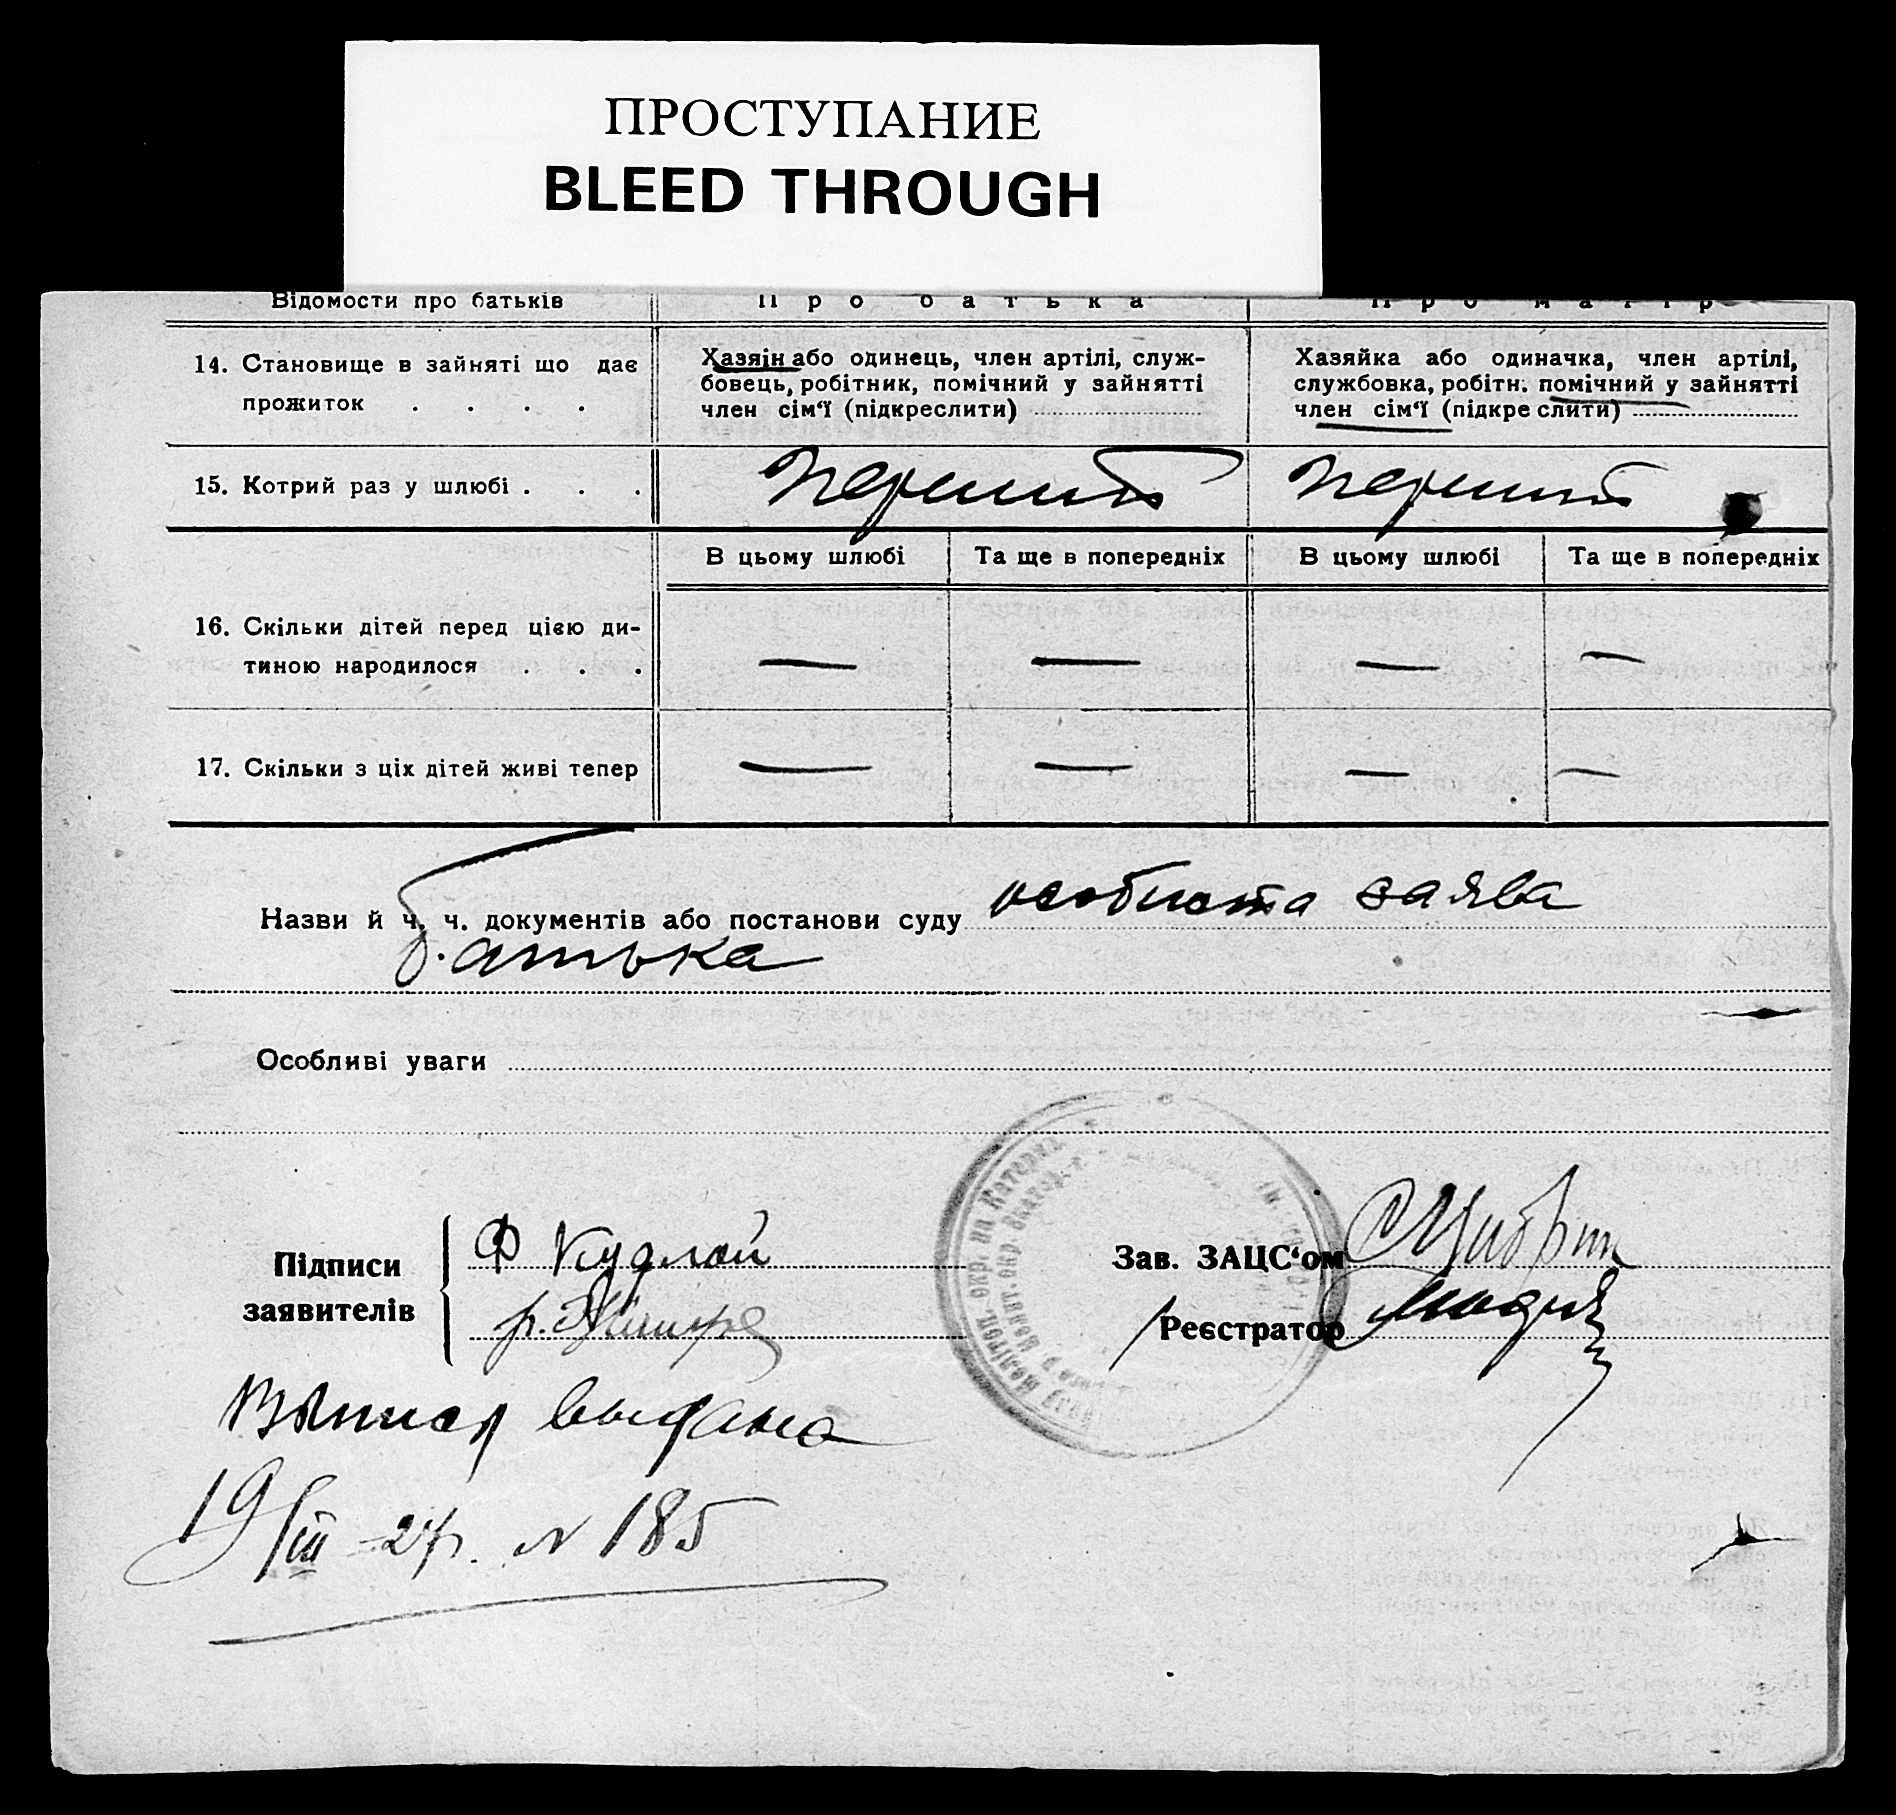 ПРОСТУПАНИЕ
BLEED THROUGH
Відомости про батьків
Про батька
Про матір
14. Становище в зайняті що дає
прожиток . . . .
Хазяін або одинець, член артілі, служ-
бовець, робітник, помічний у зайнятті
член сім‘ї (підкреслити)
Хазяйка або одиначка, член артілі,
службовка, робітн. помічний у зайнятті
член сім‘ї (підкре слити)
15. Котрий раз у шлюбі . . .
перший
перший
В цьому шлюбі
Та ще в попередніх
В цьому шлюбі
Та ще в попередніх
16. Скільки дітей перед цією ди-
тиною народилося . . .
— — — —
17. Скільки з ціх дітей живі тепер
— — — —
Назви й ч. ч. документів або постанови суду особиста заява
батька
Особливі уваги
Підписи
заявителів
Ф Кудлай
Зав. ЗАЦС‘ом
Реєстратор
выдана
19/III -27р. N 185